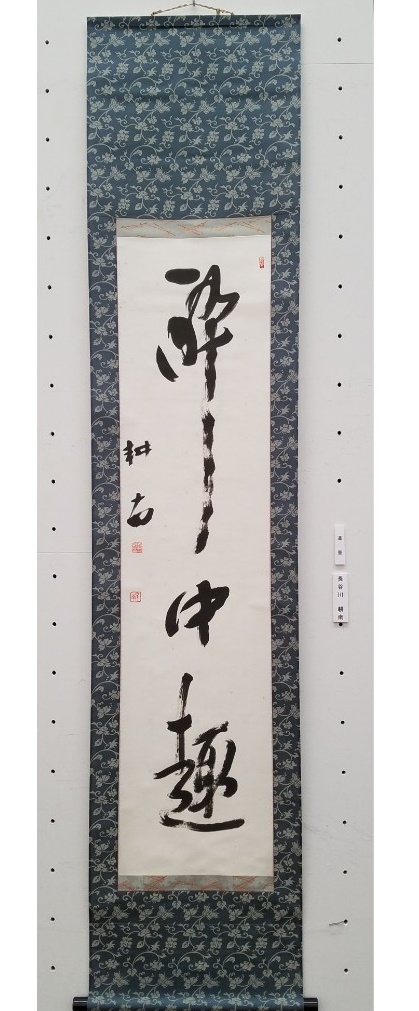 酔中趣
耕南
長谷川 耕南